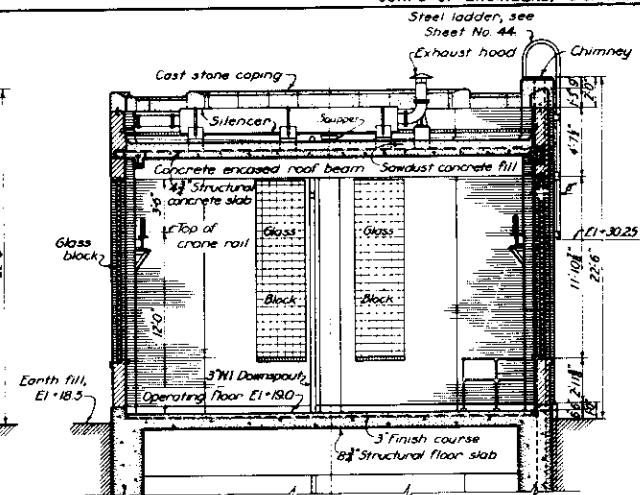 Steel ladder, see
Sheet No. 44.
Exhaust hood
Chimney
Cast stone coping
Silencer
Scupper
2'-0"
4'-7½"
Concrete encased roof beam
Sawdust concrete fill
4¾" Structural
concrete slab
3'-6"
8"
Top of
crane rail
Glass
block
Glass
Block
Glass
Block
El+30.25
11'-10¾"
22'-6"
12'-0"
3" W.I. Downspout
Earth fill,
El+18.5
Operating floor El+19.0
3" Finish course
8¾" Structural floor slab